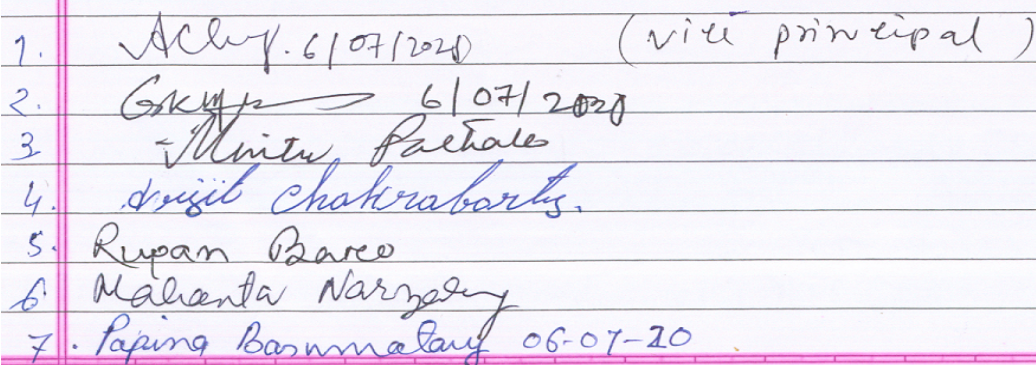 1. 6/07/2020 (vice principal)
2. 6/07/2020
3 Mintu Pathak
4. Avijit Chakrabarty.
5. Rupan Baro
6 Mahanta Narzary
7. Papina Basumatary 06-07-20